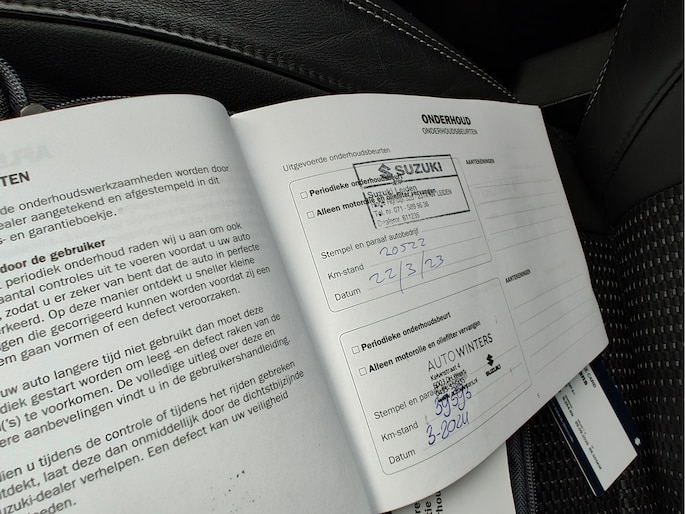 TEN
de onderhoudswerkzaamheden worden door
ealer aangetekend en afgestempeld in dit
s- en garantieboekje.
door de gebruiker
t periodiek onderhoud raden wij u aan om ook
aantal controles uit te voeren voordat u uw auto
, zodat u er zeker van bent dat de auto in perfecte
erkeerd. Op deze manier ontdekt u sneller kleine
ngen die gecorrigeerd kunnen worden voordat zij een
em gaan vormen of een defect veroorzaken.
uw auto langere tijd niet gebruikt dan moet deze
diek gestart worden om leeg -en defect raken van de
('s) te voorkomen. De volledige uitleg over deze en
ere aanbevelingen vindt u in de gebruikershandleiding.
dien u tijdens de controle of tijdens het rijden gebreken
tdekt, laat deze dan onmiddellijk door de dichtstbijzijnde
uzuki-dealer verhelpen. Een defect kan uw veiligheid
oeden.
ONDERHOUD
ONDERHOUDSBEURTEN
Uitgevoerde onderhoudsbeurten
AANTEKENINGEN
SUZUKI
Periodieke
Suzuki Leiden
Alleen motorolie en oliefilter vervangen
LEIDEN
Tel. nr. 071 - 589
Dealernr. 611235
Stempel en paraaf autobedrijf
20522
Km-stand
22/3/23
Datum
AANTEKENINGEN
Periodieke onderhoudsbeurt
Alleen motorolie en oliefilter vervangen
AUTO WINTERS
SUZUKI
Stempel en paraaf
Km-stand
3-2024
Datum